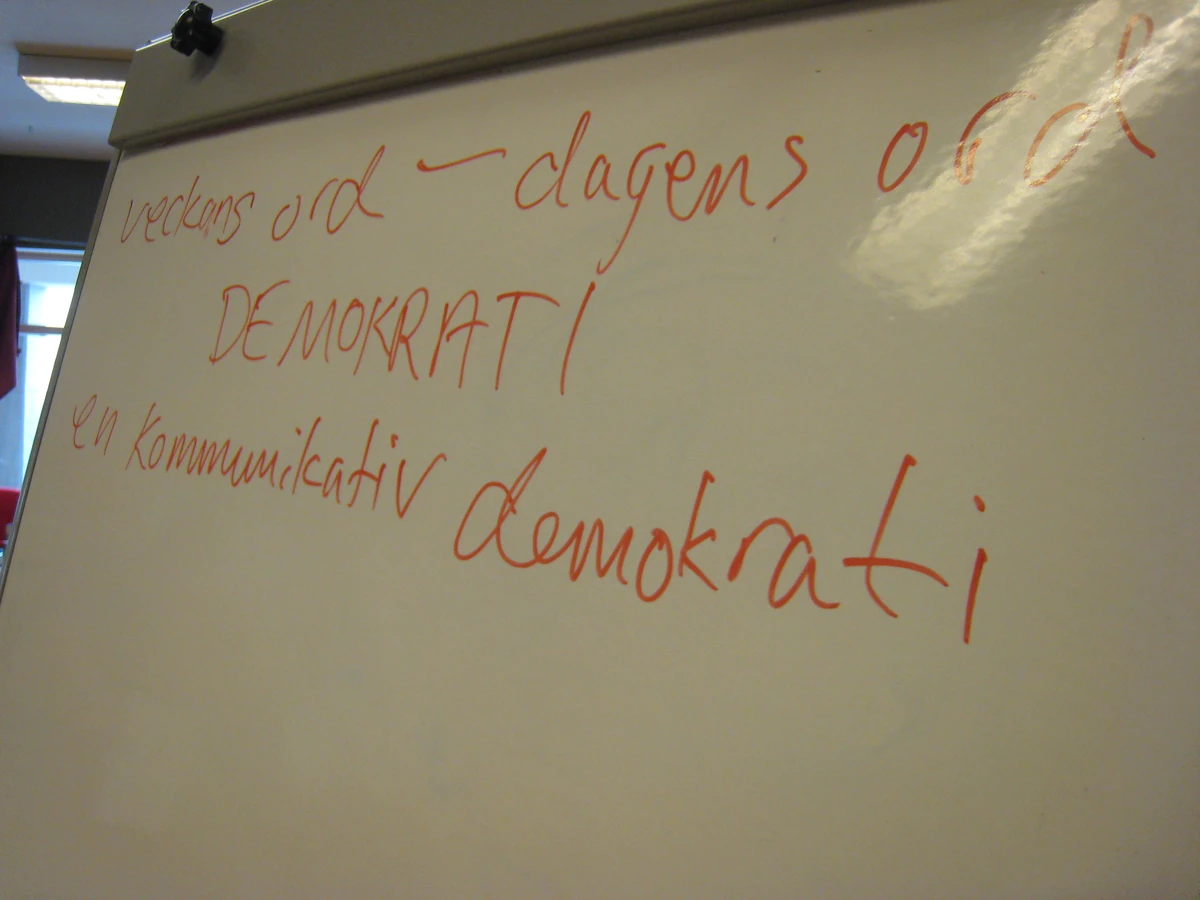 veckans ord - dagens ord
DEMOKRATI
en kommunikativ demokrati